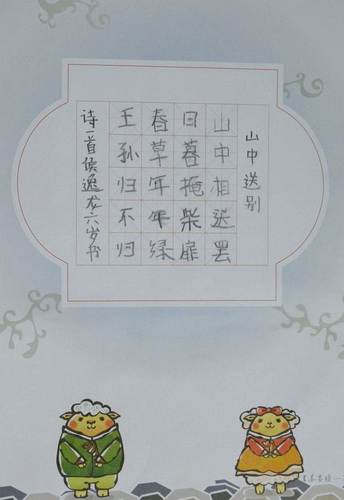 山中送别
山中相送罢
日暮掩柴扉
春草年年绿
王孙归不归
诗一首侯逸龙六岁书